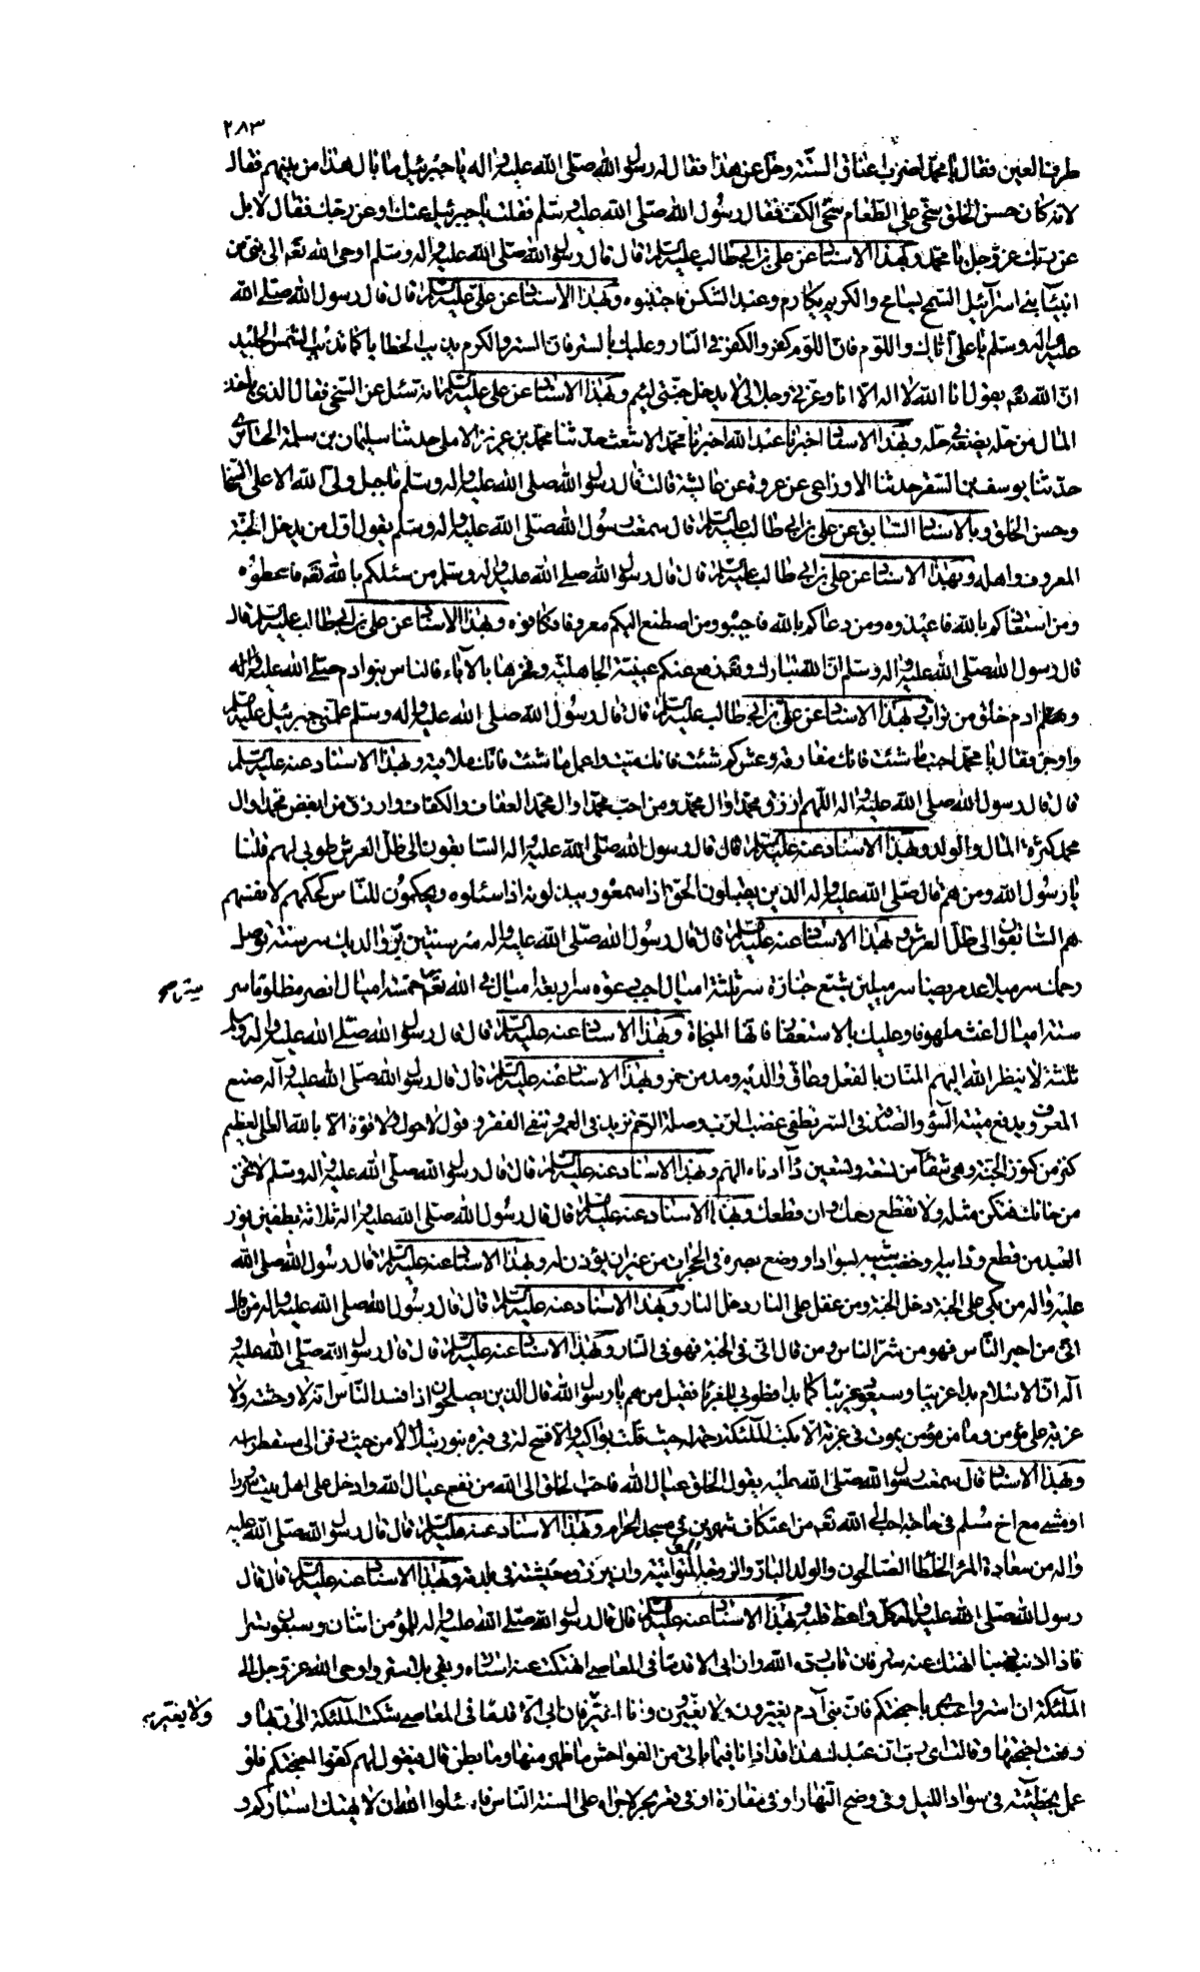 ٢٨٣
طرفة العين فقال يا محمد اضرب اعناق الستة وخل عن هذا فقال له رسول الله صلى الله عليه واله يا جبرئيل ما بال هذا من بينهم فقال
لانه كان حسن الخلق سخي على الطعام سخي الكف فقال رسول الله صلى الله عليه وسلم فقلت يا جبرئيل عنك او عن ربك فقال لا بل
عن ربك عز وجل يا محمد وبهذا الاسناد عن علي بن ابي طالب عليه السلم قال قال رسول الله صلى الله عليه واله وسلم اوحى الله تعم الى نبي من
انبياء بني اسرآئيل السمح يسامح والكريم يكارم وعند الشكس فاجتنبوه وبهذا الاسناد عن علي عليه السلم قال قال رسول الله صلى الله
عليه واله وسلم يا علي اياك واللؤم فان اللؤم كفر والكفر في النار وعليك بالستر فان الستر والكرم يذيب الخطايا كما تذيب الشمس الجليد
ان الله تعم يقول انا الله لا اله الا انا وعزتي وجلالي لا يدخل جنتي لئيم وبهذا الاسناد عن علي عليه السلم انه سئل عن السخي فقال الذي ياخذ
المال من حله يضعه في حله وبهذا الاسناد اخبرنا عبد الله اخبرنا محمد الاشعث حدثنا محمد بن عزيز الايلي حدثنا سليمان بن سلمة
حدثنا يوسف بن السفر حدثنا الاوزاعي عن عروة عن عائشة قالت قال رسول الله صلى الله عليه واله وسلم ما جبل ولي الله الا على السخا
وحسن الخلق وبالاسناد السابق عن علي بن ابي طالب عليه السلم قال سمعت رسول الله صلى الله عليه واله وسلم يقول اول من يدخل الجنة
المعروف واهله وبهذا الاسناد عن علي بن ابي طالب عليه السلم قال قال رسول الله صلى الله عليه واله وسلم من سئلكم بالله تعم فاعطوه
ومن استعاذكم بالله فاعيذوه ومن دعاكم بالله فاجيبوه ومن اصطنع اليكم معروفا فكافوه وبهذا الاسناد عن علي بن ابي طالب عليه السلم قال
قال رسول الله صلى الله عليه واله وسلم ان الله تبارك وتعم قد رفع عنكم عبية الجاهلية وفخرها بالآباء فالناس بنو ادم صلى الله عليه واله
وسلم ادم خلق من تراب بهذا الاسناد عن علي بن ابي طالب عليه السلم قال قال رسول الله صلى الله عليه واله وسلم علمني جبرئيل عليه السلم
واوجز فقال يا محمد احبب ما شئت فانك مفارقه وعش كم شئت فانك ميت واعمل ما شئت فانك ملاقيه وبهذا الاسناد عنه عليه السلم
قال قال رسول الله صلى الله عليه واله اللهم ارزق محمدا وال محمد ومن احب محمدا وال محمد العفاف والكفاف وارزق من ابغض محمدا وال
محمد كثرة المال والولد وبهذا الاسناد عنه عليه السلم قال قال رسول الله صلى الله عليه واله السابقون الى ظل العرش طوبى لهم قلنا
يا رسول الله ومن هم قال صلى الله عليه واله الذين يقبلون الحق اذا سمعوه ويبذلونه اذا سئلوه ويحكمون للناس كحكمهم لانفسهم
هم السابقون الى ظل العرش وبهذا الاسناد عنه عليه السلم قال قال رسول الله صلى الله عليه واله سر سنتين بر والديك سر سنة توصل
رحمك سر ميلا عد مريضا سر ميلين شيع جنازة سر ثلثة اميال اجب دعوة سر اربعة اميال في الله تعم خمسة اميال انصر مظلوما سر
ستة اميال اغث ملهوفا وعليك بالاستغفار فانها المنجاة وبهذا الاسناد عنه عليه السلم قال قال رسول الله صلى الله عليه واله وسلم
ثلثة لا ينظر الله اليهم المنان بالفعل وعاق والديه ومدمن خمر وبهذا الاسناد عنه عليه السلم قال قال رسول الله صلى الله عليه واله صنع
المعروف يدفع ميتة السوء والصدقة في السر تطفئ غضب الرب وصلة الرحم تزيد في العمر وتنفي الفقر وقول لا حول ولا قوة الا بالله العلي العظيم
كنز من كنوز الجنة وهي شفآء من تسعة وتسعين دآء ادناه الهم وبهذا الاسناد عنه عليه السلم قال قال رسول الله صلى الله عليه واله وسلم لا تخن
من خانك فتكن مثله ولا تقطع رحمك وان قطعك وبهذا الاسناد عنه عليه السلم قال قال رسول الله صلى الله عليه واله ثلاثة يطفين نور
العبد من قطع وداء ابيه وخضب شيبه بسواد او وضع بصره في الحجرات من غير ان يؤذن له وبهذا الاسناد عنه عليه السلم قال رسول الله صلى الله
عليه واله من بكى على الجنة دخل الجنة ومن عقل على النار دخل النار وبهذا الاسناد عنه عليه السلم قال قال رسول الله صلى الله عليه واله من قال
اني من اخير الناس فهو من شر الناس ومن قال اني في الجنة فهو في النار وبهذا الاسناد عنه عليه السلم قال قال رسول الله صلى الله عليه و
آله ان الاسلام بدا غريبا وسيعود غريبا كما بدا فطوبى للغرباء فقيل من هم يا رسول الله قال الذين يصلحون اذا فسد الناس انه لا وحشة ولا
غربة على مؤمن وما من مؤمن يموت في غربة الا بكت الملئكة رحمة له حيث قلت بواكيه والا فسح له في قبره بنور يتلألأ من حيث دفن الى مسقط راسه
وبهذا الاسناد قال سمعت رسول الله صلى الله عليه يقول الخلق عيال الله فاحب الخلق الى الله من نفع عيال الله وادخل على اهل بيت سرورا
او مشى مع اخ مسلم في حاجة احب الى الله تعم من اعتكاف شهرين في مسجد الحرام وبهذا الاسناد عنه عليه السلم قال قال رسول الله صلى الله عليه
واله من سعادة المرء الخلطاء الصالحون والولد البار والزوجة المؤاتية وان يرزق معيشته في بلده وبهذا الاسناد عنه عليه السلم قال قال
رسول الله صلى الله عليه واله لكل واعظ قبلة وبهذا الاسناد عنه عليه السلم قال قال رسول الله صلى الله عليه واله للمؤمن اثنان وسبعون سترا
فاذا اذنب ذنبا انهتك عنه ستر فان تاب رده الله وان ابى الا قدما في المعاصي انهتكت عنه استاره وبقي بلا ستر واوحى الله عز وجل الى
الملئكة ان استروا عبدي باجنحتكم فان بني آدم يغيرون ولا يغيرون وانا اغير فان ابى الا قدما في المعاصي شكت الملئكة الى ربها و
رفعت اجنحتها وقالت اي رب ان عبدك هذا قد اذانا فيما ياتي من الفواحش ما ظهر منها وما بطن قال فيقول لهم كفوا اجنحتكم فلو
عمل بخطيئته في سواد الليل وفي وضح النهار او في مفازة او في قعر بحر لاجراه على السنة الناس فاسئلوا الله ان لا يهتك استاركم و